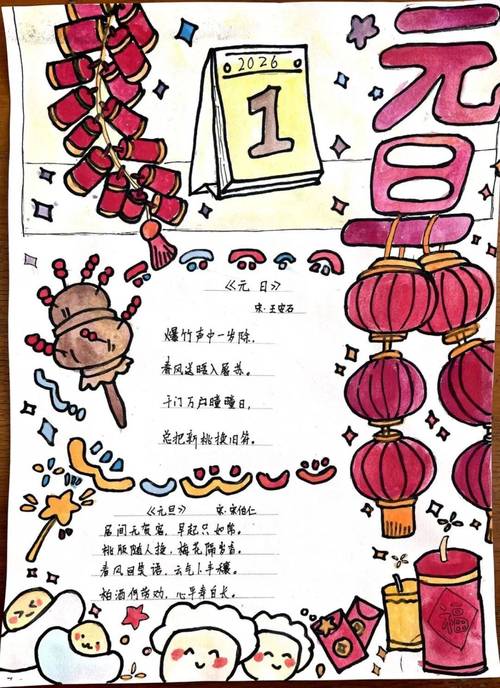 元旦
2026
1
《元日》
宋·王安石
爆竹声中一岁除，
春风送暖入屠苏。
千门万户曈曈日，
总把新桃换旧符。
《元旦》 宋·宋伯仁
居间无贺客，早起只如常。
桃版随人换，梅花隔岁香。
春风回笑语，云气卜丰穰。
柏酒何劳劝，心平寿自长。
福